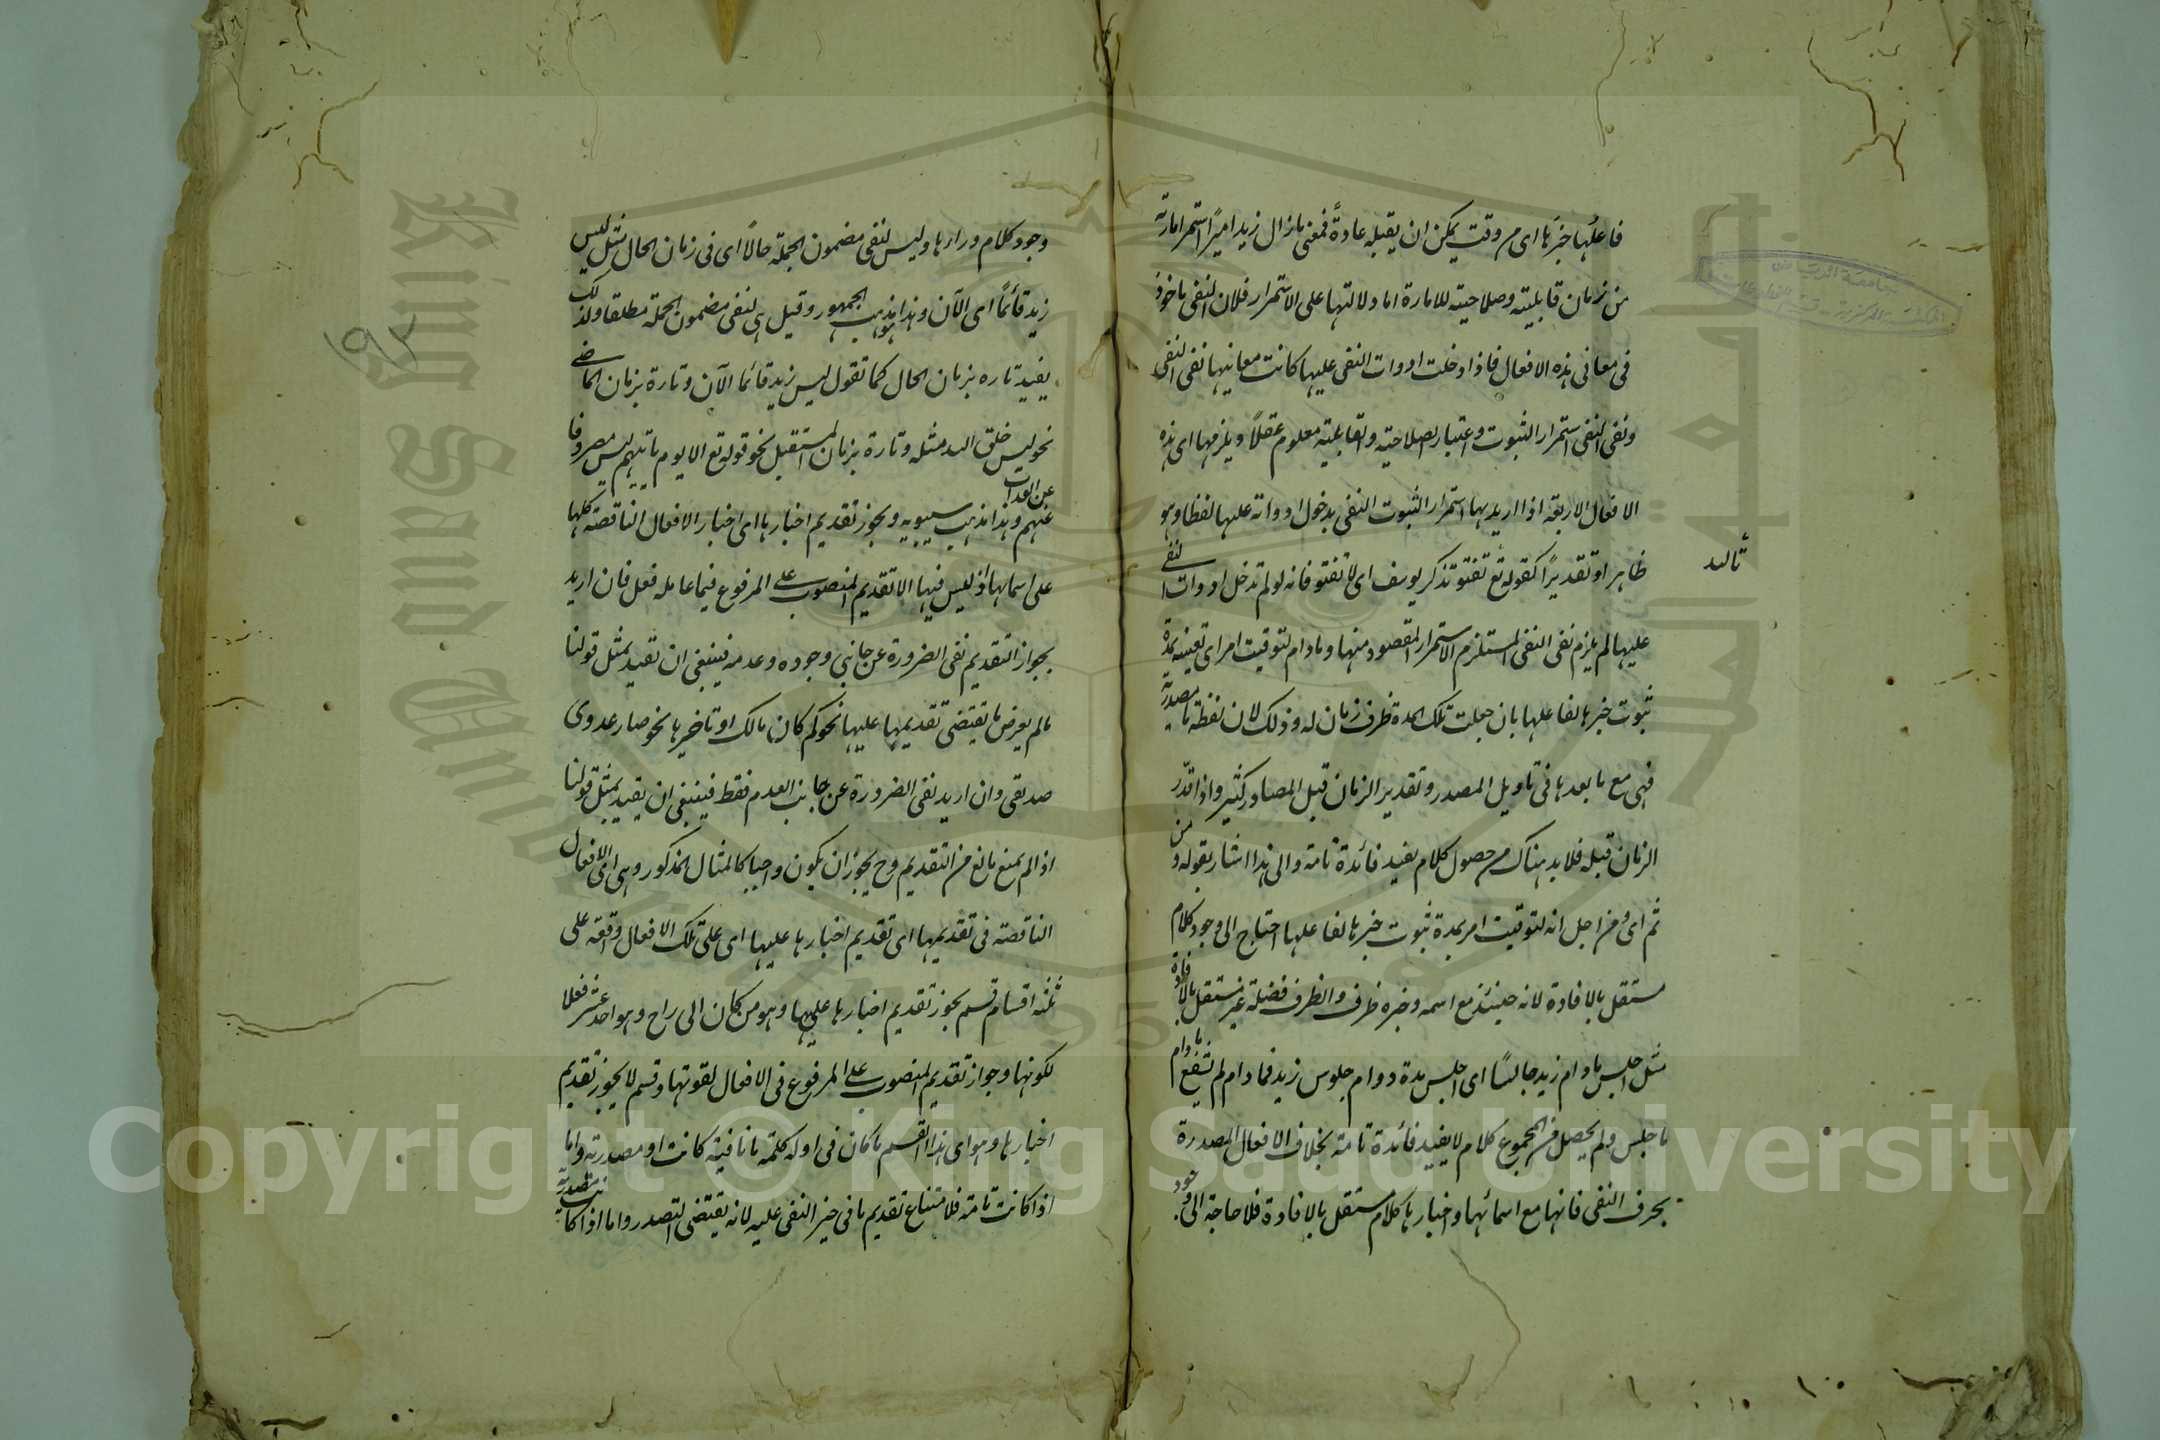 فاعلها خبرها اى من وقت يمكن ان يقبله عادة فمعنى مازال زيد اميرًا استمر امارته
من زمان قابليته وصلاحيته للامارة اما دلالتها على الاستمرار فلان النفى ماخوذ
فى معانى هذه الافعال فاذا دخلت ادوات النفى عليها كانت معانيها نفى النفى
ونفى النفى استمرار الثبوت واعتبار الصلاحيته والقابليته معلوم عقلًا ويلزمها اى هذه
الافعال الاربعة اذا اريد بها استمرار الثبوت النفى بدخول ادواته عليها لفظا وهو
ظاهر او تقديرًا كقوله تع تفتو تذكر يوسف اى لا تفتو فانه لو لم تدخل ادوات النفى
تالله
عليها لم يلزم نفى النفى المستلزم الاستمرار المقصود منها ومادام لتوقيت امر اى تعينه بمدة
ثبوت خبرها لفاعلها بان جعلت تلك المدة ظرف زمان له وذلك لان لفظة ما مصدرية
فهى مع ما بعدها فى تاويل المصدر وتقدير الزمان قبل المصادر كثير واذا قدّر
الزمان قبله فلا بد هناك من حصول كلام يفيد فائدة تامة والى هذا اشار بقوله ومن
ثم اى ومن اجل انه لتوقيت امر بمدة ثبوت خبرها لفاعلها احتاج الى وجود كلام
مستقل بالافادة لانه حينئذ مع اسمه وخبره ظرف والظرف فضلة غير مستقل بالافادة
مثل اجلس مادام زيد جالسًا اى اجلس مدة دوام جلوس زيد فمادام لم تشفع مادام
باجلس ولم يحصل من المجموع كلام لا يفيد فائدة تامة بخلاف الافعال المصدرة
بحرف النفى فانها مع اسمائها واخبارها كلام مستقل بالافادة فلا حاجة الى وجود
وجود كلام ورارها وليس لنفى مضمون الجملة حالًا اى فى زمان الحال مثل ليس
زيد قائمًا اى الآن وهذا مذهب الجمهور وقيل هى لنفى مضمون الجملة مطلقا ولذلك
يفيد تاره بزمان الحال كما تقول ليس زيد قائما الآن وتارة بزمان الماضى
نحو ليس خلق الله مثله وتارة بزمان المستقبل نحو قوله تع الا يوم ياتيهم ليس مصروفا
عنهم وهذا مذهب سيبويه ويجوز تقديم اخبارها اى اخبار الافعال الناقصة كلها
على اسمائها اذ ليس فيها الا تقديم المنصوب على المرفوع فيما عامله فعل فان اريد
بجواز التقديم نفى الضرورة عن جانبى وجوده وعدمه فينبغى ان تقيد بمثل قولنا
مالم يعرض ما يقتضى تقديمها عليها نحو كم كان مالك او تاخيرها نحو صار عدوى
صديقى وان اريد نفى الضرورة عن جانب العدم فقط فينبغى ان يقيد بمثل قولنا
اذا لم يمنع مانع من التقديم وح يجوز ان يكون واجبا كالمثال المذكور وهى اى الافعال
الناقصة فى تقديمها اى تقديم اخبارها عليها اى على تلك الافعال وقعة على
ثلثة اقسام قسم يجوز تقديم اخبارها عليها وهو من كان الى راح وهو احد عشر فعلا
لكونها وجواز تقديم المنصوب على المرفوع فى الافعال لقوتها وقسم لا يجوز تقديم
اخبارها وهو اى هذا القسم ما كان فى اوله كلمة ما نافية كانت او مصدرية واما
اذا كانت تامة فلامتناع تقديم ما فى خبر النفى عليه لانه يقتضى التصدر واما اذا كانت مصدرية